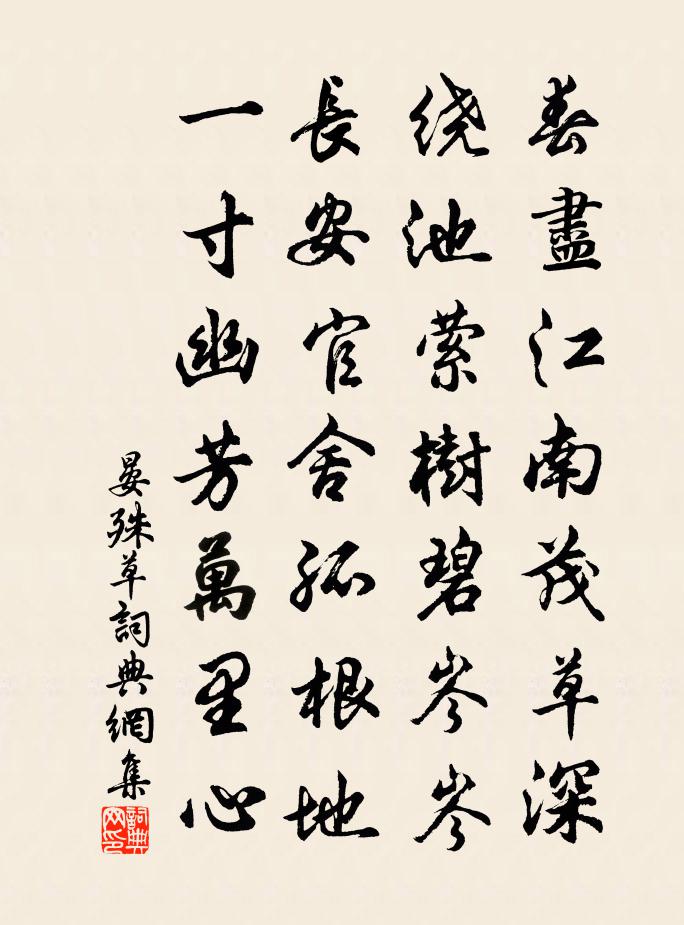 春盡江南茂草深
绕池萦樹碧岑岑
長安官舍孤根地
一寸幽芳萬里心
晏殊草詞典網集
詞典网印